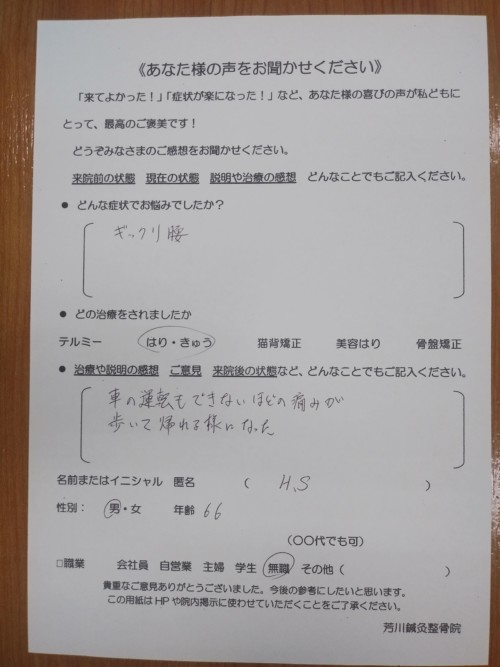 《あなた様の声をお聞かせください》
「来てよかった！」「症状が楽になった！」など、あなた様の喜びの声が私どもに
とって、最高のご褒美です！
どうぞみなさまのご感想をお聞かせください。
来院前の状態　現在の状態　説明や治療の感想　どんなことでもご記入ください。
● どんな症状でお悩みでしたか？
ギックリ腰
● どの治療をされましたか
テルミー　はり・きゅう　猫背矯正　美容はり　骨盤矯正
● 治療や説明の感想　ご意見　来院後の状態など、どんなことでもご記入ください。
車の運転もできないほどの痛みが
歩いて帰れる様になった
名前またはイニシャル　匿名　（　H.S　）
性別：　男・女　年齢 66
（〇〇代でも可）
□職業　会社員　自営業　主婦　学生　無職　その他（　）
貴重なご意見ありがとうございました。今後の参考にしたいと思います。
この用紙はHPや院内掲示に使わせていただくことをご了承ください。
芳川鍼灸整骨院